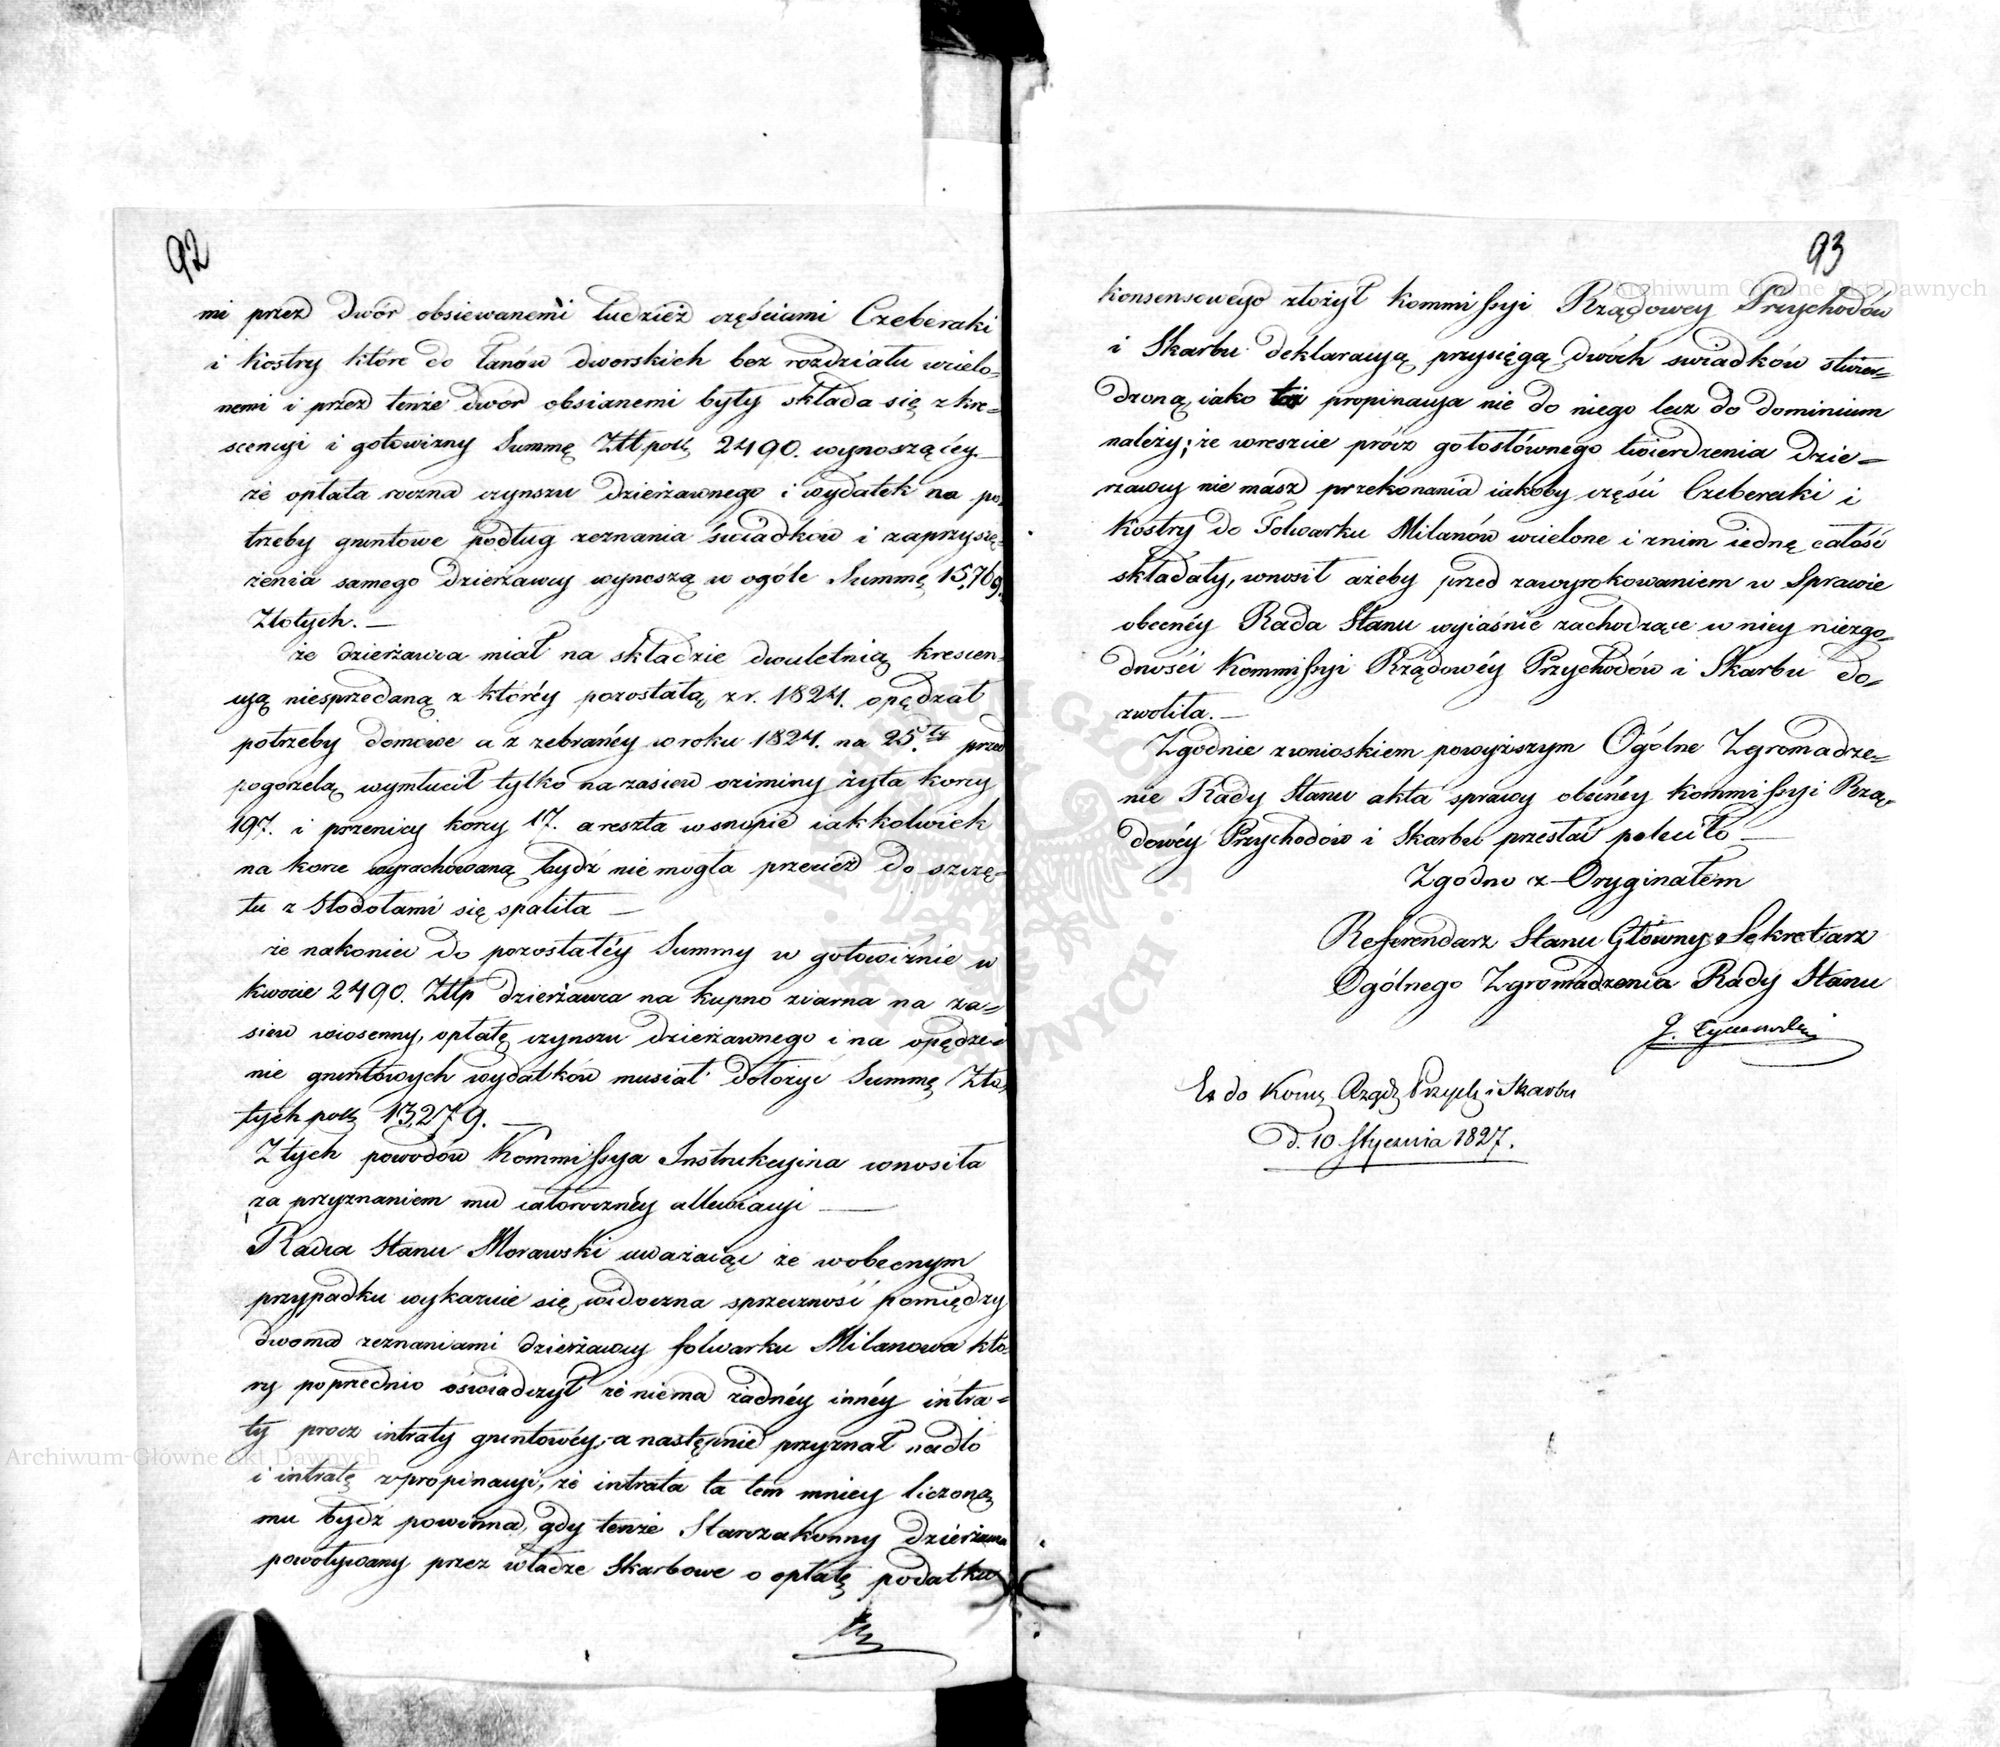 92
mi przez Dwór obsiewanemi tudzież częściami Czeberaki
i Kostry które do łanów dworskich bez rozdziału wcielo-
nemi i przez tenże dwór obsianemi były składa się z kre-
scencyi i gotowizny Summę Złł polł 2490. wynoszącéy
że opłata roczna czynszu dzierżawnego i wydatek na po-
trzeby gruntowe podług zeznania świadków i zaprzysię-
żenia samego dzierżawcy wynoszą w ogóle Summę 15,769.
Złotych. —
że dzierżawca miał na składzie dwuletnią krescen-
cyą niesprzedaną z któréy pozostałą z r. 1824. opędzał
potrzeby domowe a z zebranéy w roku 1824. na 25.ty przed
pogorzelą wymłucił tylko na zasiew oziminy żyta korcy
197. i przenicy korcy 17. a reszta w snopie iakkolwiek
na korce wyrachowaną bydź nie mogła przecież do szczę-
tu z Stodołami się spaliła —
że nakoniec do pozostałéy Summy w gotowiźnie w
kwocie 2490. Złłp dzierżawca na kupno ziarna na za-
siew wiosenny, opłatę czynszu dzierżawnego i na opędze-
nie gruntowych wydatków musiał dołożyć Summę Zło-
tych polł 13,279. —
Z tych powodów Kommissya Instrukcyina wnosiła
za przyznaniem mu całorocznéy allewiacyi —
Radca Stanu Morawski uważaiąc że w obecnym
przypadku wykazuie się widoczna sprzeczność pomiędzy
dwoma zeznaniami dzierżawcy folwarku Milanowa któ-
ry poprzednio oświadczył że niema żadnéy innéy intra-
ty procz intraty gruntowéy, a następnie przyznał nadto
i intratę z propinacyi, że intrata ta tem mniey liczoną
mu bydź powinna, gdy tenże Starozakonny dzierżawca
powoływany przez władze Skarbowe o opłatę podatku
93
konsensowego złożył Kommissyi Rządowey Przychodów
i Skarbu deklaracyą przysięgą dwóch swiadków stwier-
dzoną, iako też propinacya nie do niego lecz do dominium
należy; że wreszcie prócz gołosłównego twierdzenia dzie-
rzawcy nie masz przekonania iakoby części Czeberaki i
Kostry do Folwarku Milanów wcielone i z nim iednę całość
składały, wnosił ażeby przed zawyrokowaniem w Sprawie
obecnéy Rada Stanu wyiaśnie zachodzące w niey niezgo-
dności Kommissyi Rządowéy Przychodów i Skarbu do-
zwoliła. —
Zgodnie z wnioskiem powyższym Ogólne Zgromadze-
nie Rady Stanu akta sprawy obecnéy Kommissyi Rzą-
dowéy Przychodów i Skarbu przesłać poleciło —
Zgodno z Oryginałem
Referendarz Stanu Główny Sekretarz
Ogólnego Zgromadzenia Rady Stanu
J. Tymowski
Ex do Komiſ Rządz Przych i Skarbu
d. 10 Stycznia 1827.
Archiwum Główne Akt Dawnych
Archiwum Główne Akt Dawnych